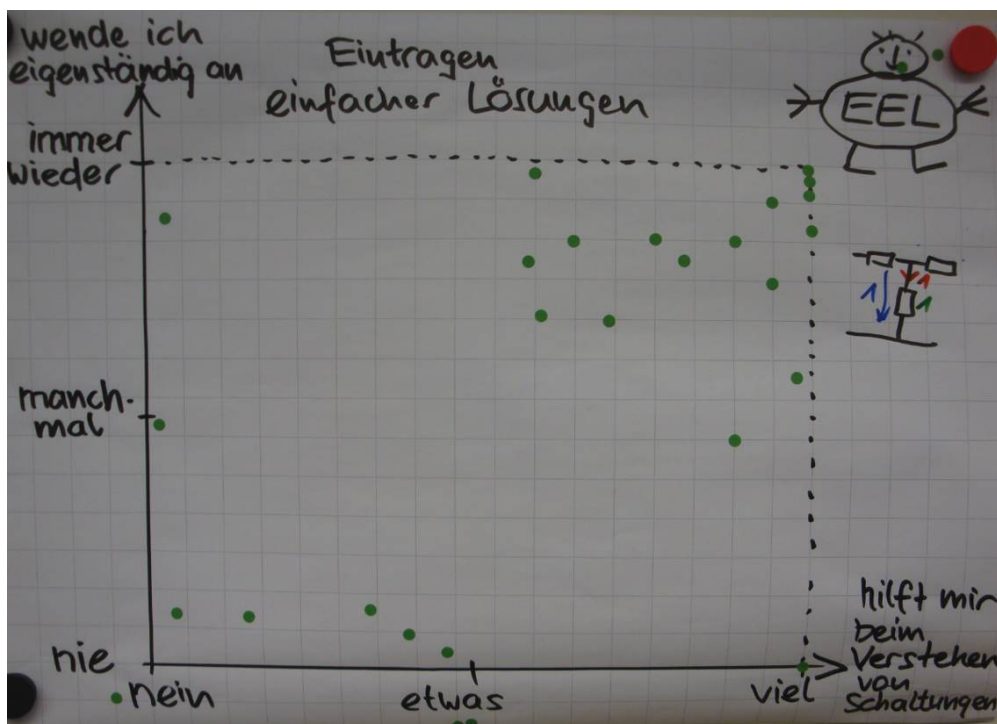 wende ich
eigenständig an
Eintragen
einfacher Lösungen
EEL
immer
wieder
1
1
1
manch-
mal
nie
nein
etwas
viel
hilft mir
beim
Verstehen
von
Schaltungen